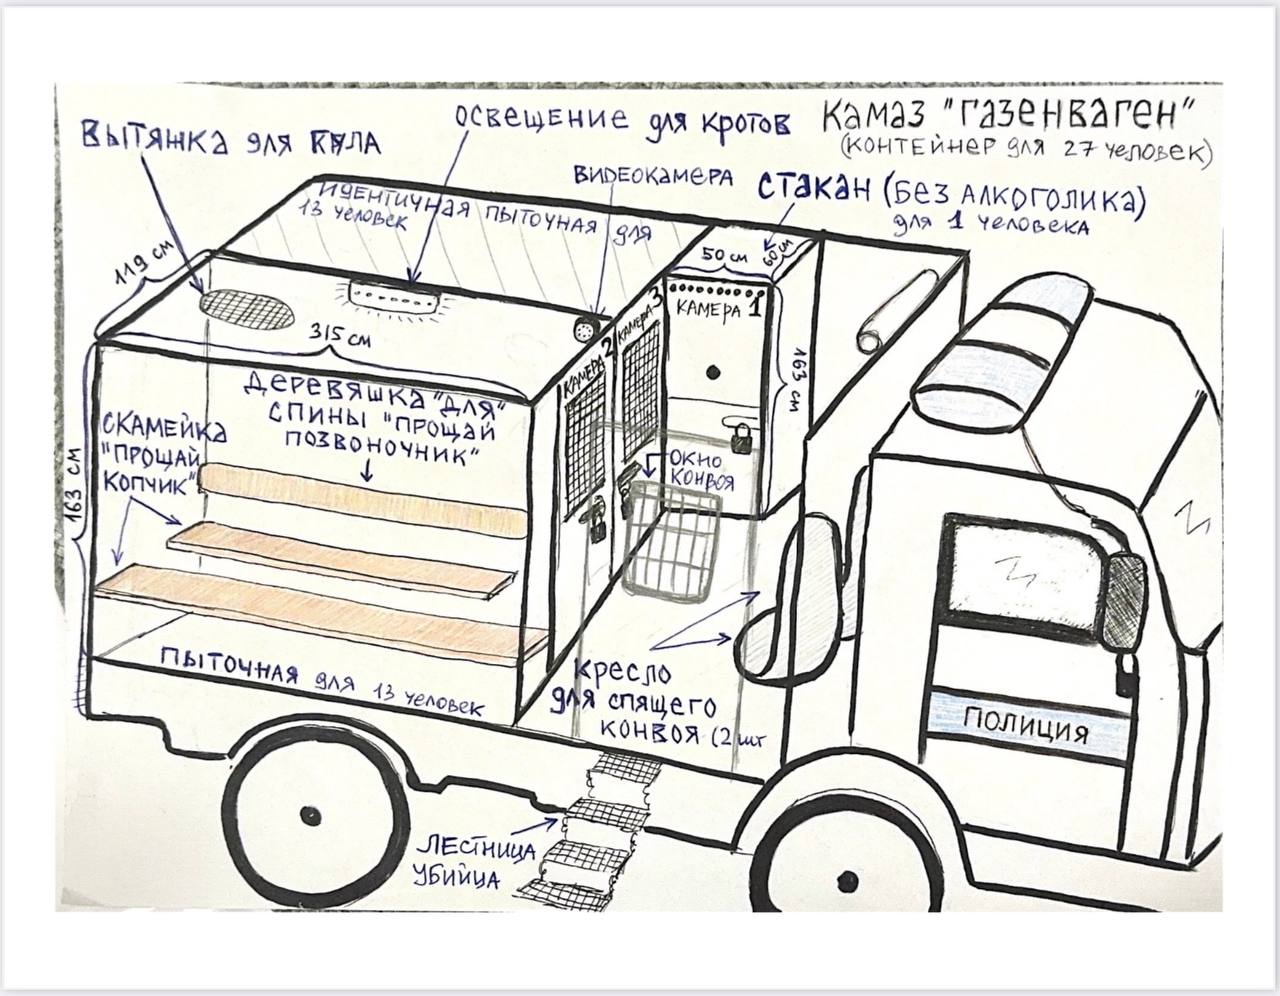 КАМАЗ "ГАЗЕНВАГЕН"
(КОНТЕЙНЕР ДЛЯ 27 ЧЕЛОВЕК)
ОСВЕЩЕНИЕ ДЛЯ КРОТОВ
ВЫТЯЖКА ДЛЯ
ВИДЕОКАМЕРА
СТАКАН (БЕЗ АЛКОГОЛИКА)
ДЛЯ 1 ЧЕЛОВЕКА
ИДЕНТИЧНАЯ ПЫТОЧНАЯ ДЛЯ
13 ЧЕЛОВЕК
119 СМ
50 СМ
60 СМ
315 СМ
163 СМ
КАМЕРА 1
КАМЕРА 2
КАМЕРА 3
163 СМ
ДЕРЕВЯШКА "ДЛЯ"
СПИНЫ "ПРОЩАЙ
ПОЗВОНОЧНИК"
СКАМЕЙКА
"ПРОЩАЙ
КОПЧИК"
ОКНО
КОНВОЯ
ПЫТОЧНАЯ ДЛЯ 13 ЧЕЛОВЕК
КРЕСЛО
ДЛЯ СПЯЩЕГО
КОНВОЯ (2 ШТ
ПОЛИЦИЯ
ЛЕСТНИЦА
УБИЙЦА